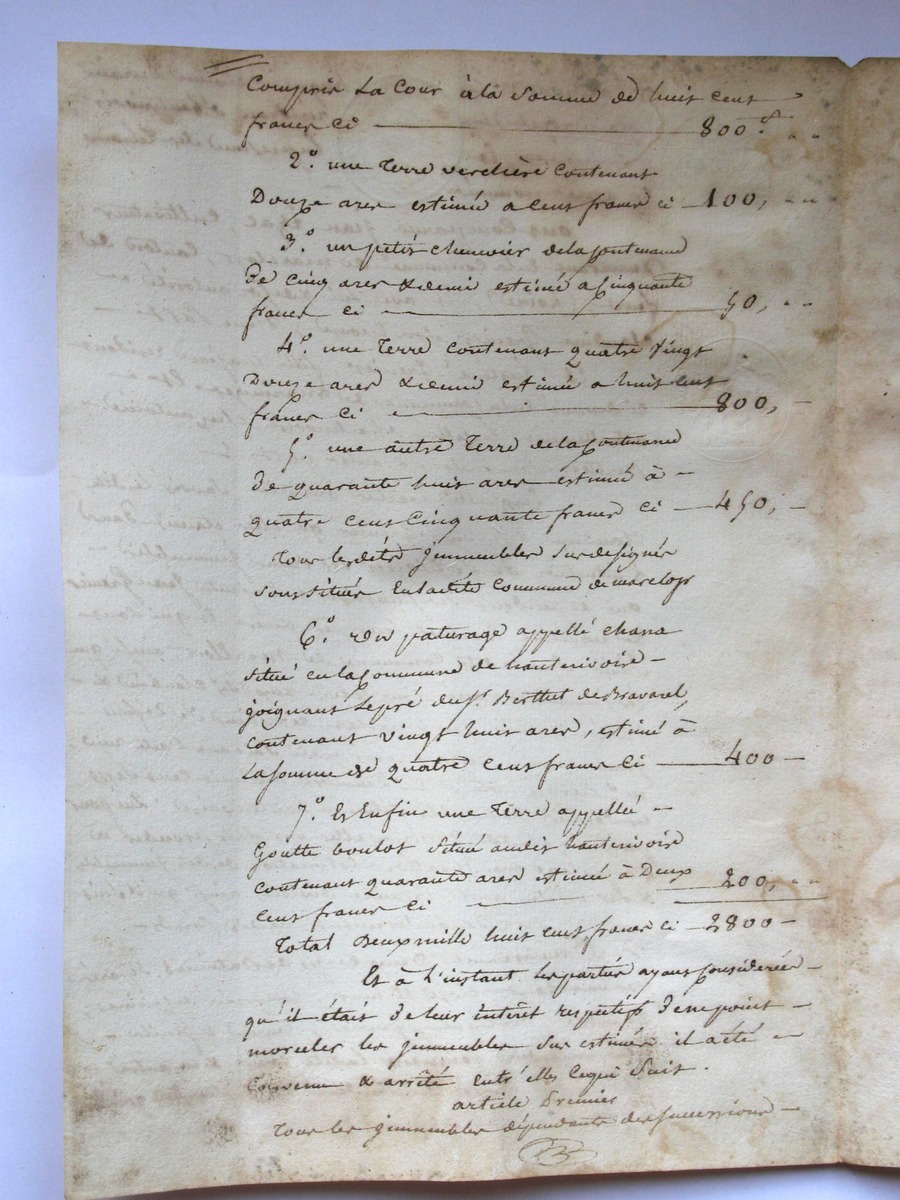 Compris La Cour à la Somme de huit cent
francs ci — 800.f
2.° une Terre verchère Contenant
Douze ares estimée a cent francs ci — 100,
3.° un petit chenevier de la Contenance
De cinq ares & demi estimé a Cinquante
francs ci — 50,
4.° une Terre Contenant quatre vingt
Douze ares & demi estimée a huit cent
francs ci — 800,
5.° une autre Terre de la Contenance
De quarante huit ares estimée à —
quatre cent Cinquante francs Ci — 450, —
Tous lesdits jmmeubles Sus designés
Sont Situés En ladite Commune de marclopt
6.° un paturage appellé chana
Situé en la Commune de hauterivoire —
joignant Le pré du Sr. Berthet de Bravarel,
Contenant vingt huit ares, estimé à
La Somme de quatre Cent francs Ci — 400 —
7.° Et Enfin une Terre appellée —
Goutte boulot Située audit hauterivoire
Contenant quarante ares estimée à Deux
Cent francs Ci — 200,
Total Deux mille huit cent francs ci — 2800 —
Et à l'instant les parties ayant Considerées —
qu'il était De leur intérêt respectif De ne point —
morceler les jmmeubles Sus estimés il a été —
Convenu & arrêté Entr'elles Ce qui Suit.
article Premier
Tous les jmmeubles dépendants des Successions —